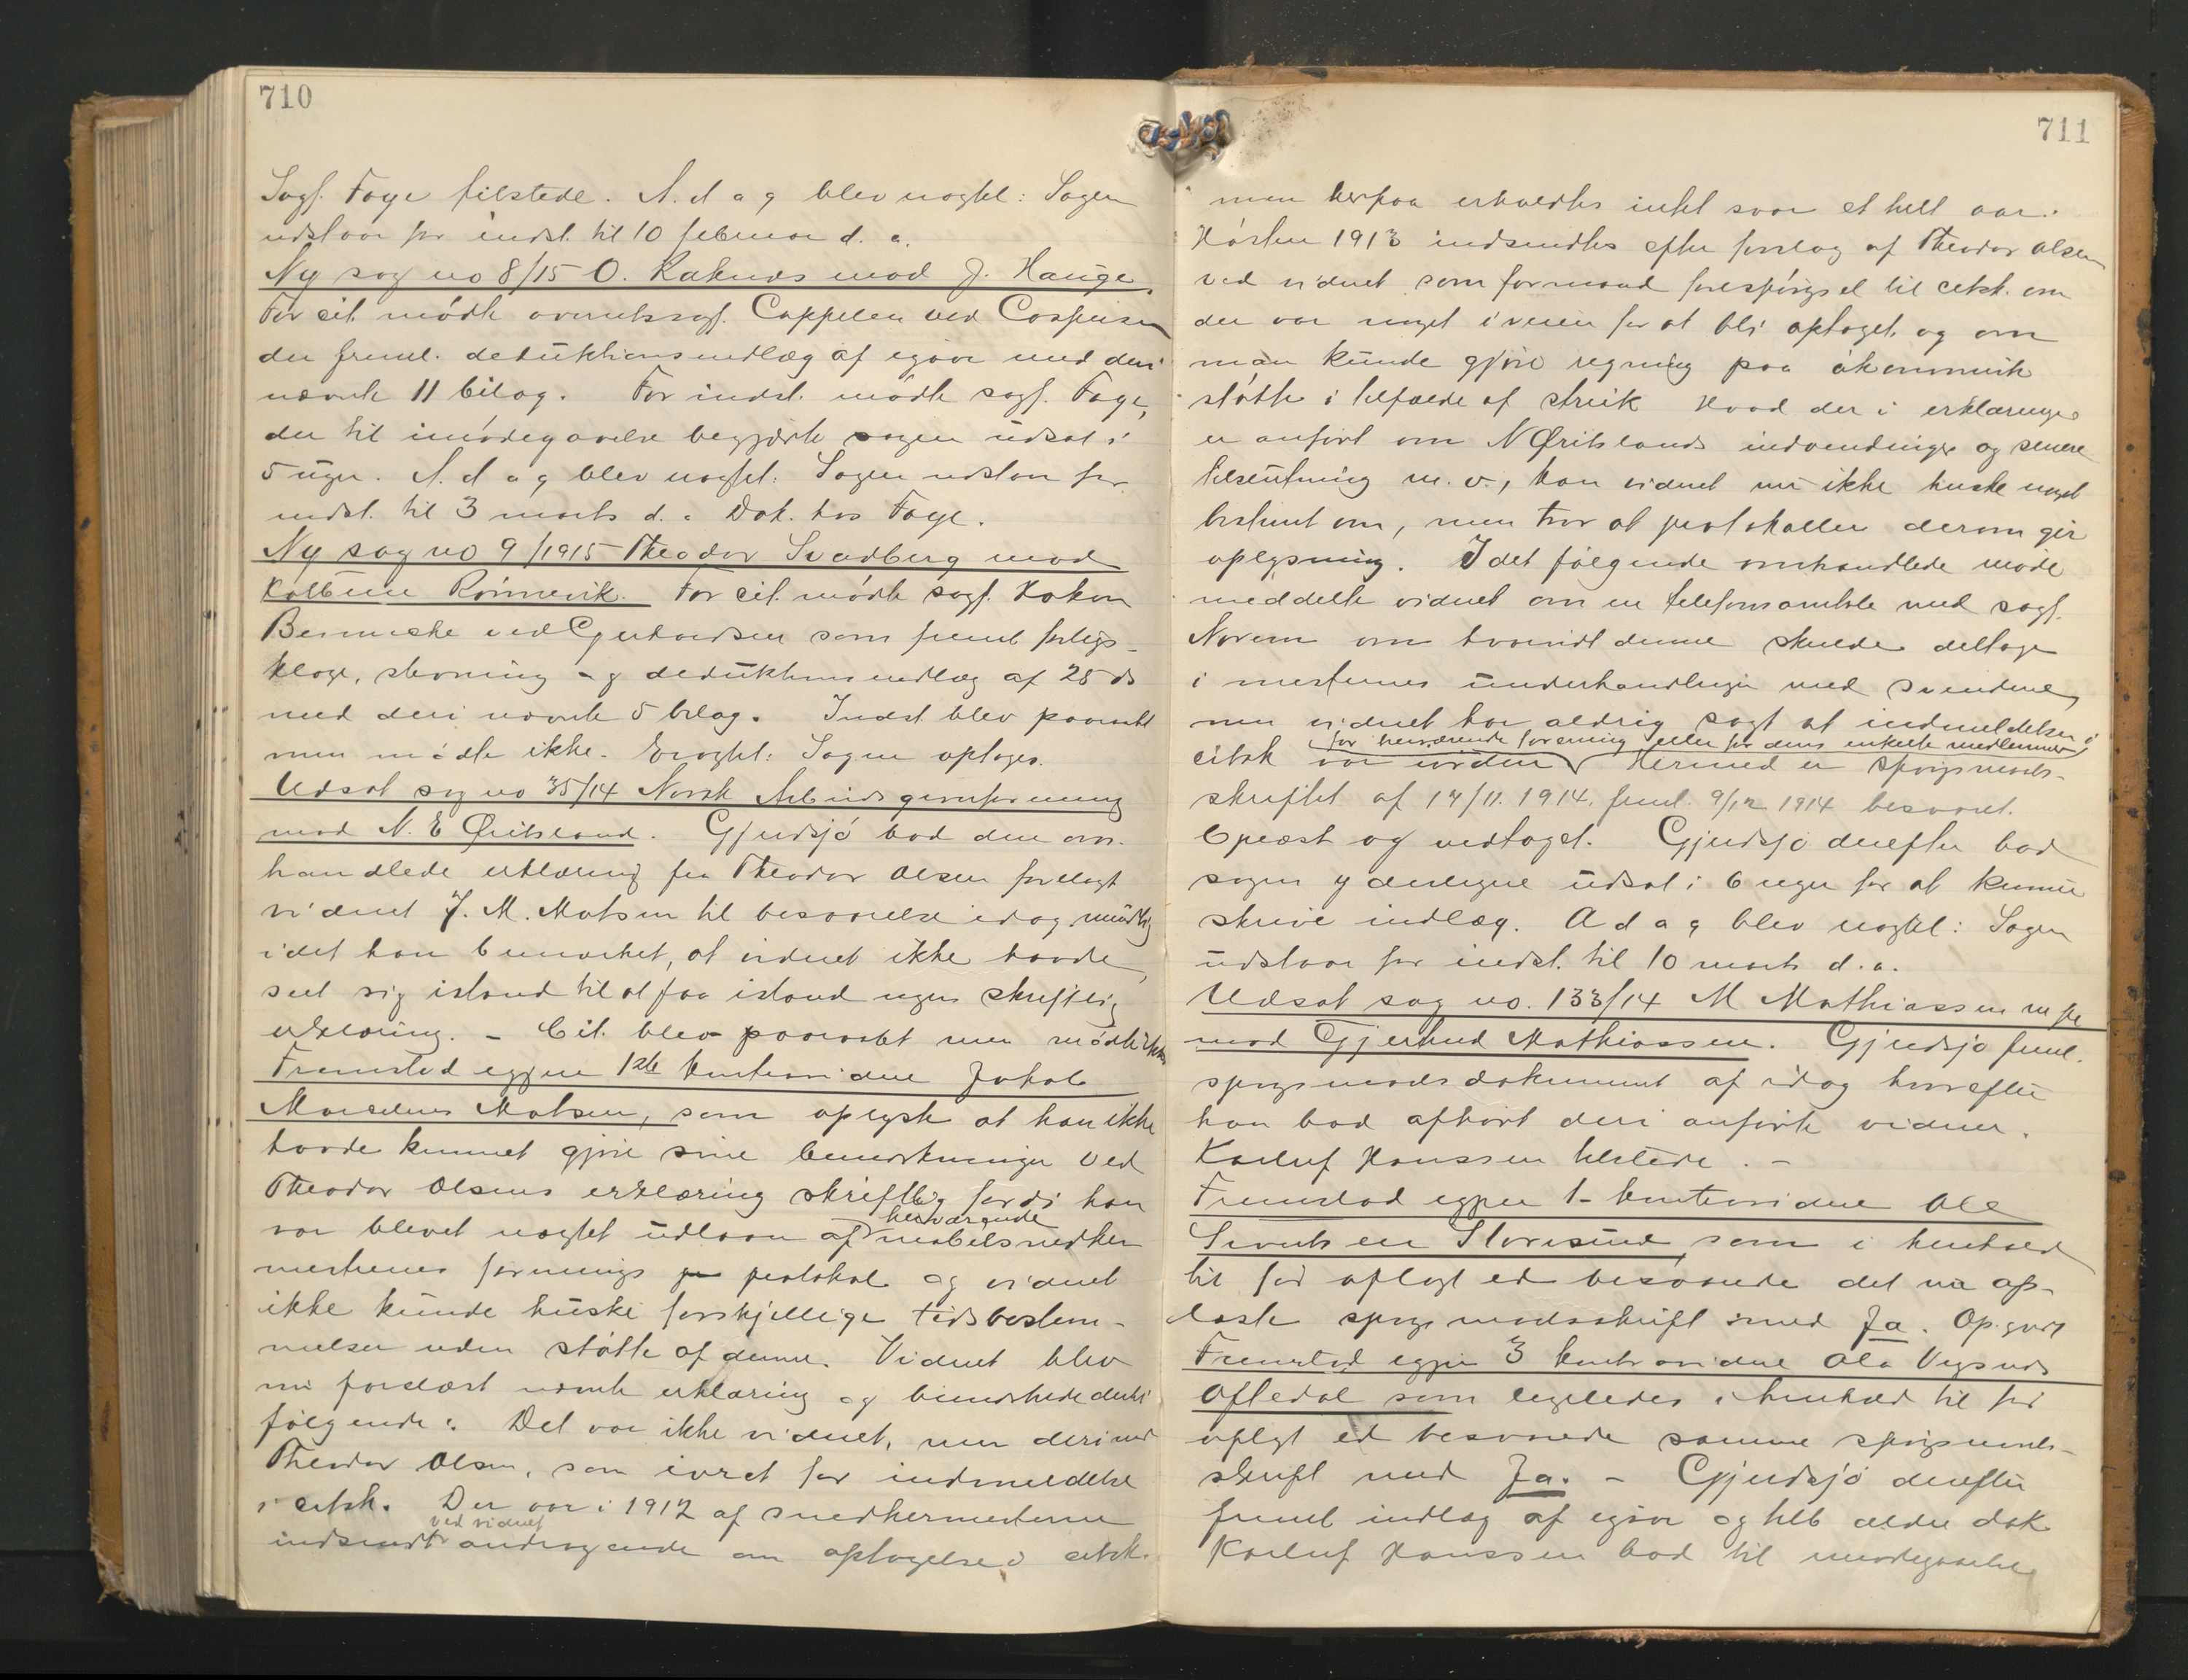 710
Sagf. Faye tilstede. A. d a g blev nægtet: Sagen
udstaar for indst. til 10 februar d. a.
Ny sag no 8/15 O. Raknes mod J. Hauge.
For cit. mødte overretssagf. Cappelen ved Caspersen
der freml. deduktionsindlæg af igaar med deri
nævnte 11 bilag. For indst. mødte sagf. Faye,
der til imødegaaelse begjærte sagen udsat i
5 uger. A. d a g blev nægtet: Sagen udstaar for
indst. til 3 marts d. a. Dok. hos Faye.
Ny sag no 9/1915 Theodor Svadberg mod
Kolbeine Rønnevik. For cit. mødte sagf. Hakon
ved Gjerhardsen som freml. forligs-
klage, stevning og deduktionsindlæg af 25 ds
med deri nævnte 5 bilag. Indst. blev paaraabt
men mødte ikke. Eragtet: Sagen optages.
Udsat sag no 35/14 Norsk Arbeidsgiverforening
mod N. E Øritsland. Gjendsjø bad den om-
handlede erklæring fra Theodor Olsen forelagt
vidnet J. M. Matsen til besvarelse idag mundtlig
idet han bemærket, at vidnet ikke havde
seet sig istand til at faa istand nogen skriftlig
erklæring. - Cit. blev paaraabt men mødte ikke
Fremstod igjen 1ste kontravidne Jakob
Marselius Matsen, som oplyste at han ikke
havde kunnet gjøre sine bemærkninger ved
Theodor Olsens erklæring skriftlig fordi han
var blevet nægtet udlaan af herværende møbelsnedker
mestrenes forenings protokol og vidnet
ikke kunde huske forskjellige tidsbestem-
melser uden støtte af denne. Vidnet blev
nu forelæst nævnte erklæring og bemærkede dertil
følgende: Det var ikke vidnet, men derimod
Theodor Olsen, som ivret for indmeldelse
i citsk. Der var i 1912 af snedkermestrene
indsendt ved vidnet andragende om optagelse i citsk.
711
men herpaa erholdtes intet svar et helt aar.
Høsten 1913 indsendtes efter forslag af Theodor Olsen
ved vidnet som formand forespørgsel til citsk. om
der var noget i veien for at bli optaget og om
man kunde gjøre regning paa økonomisk
støtte i tilfælde af streik Hvad der i erklæringen
er anført om N Øritslands indvendinger og senere
tilslutning m. v., kan vidnet nu ikke huske noget
bestemt om, men tror at protokollen derom gir
oplysning. I det følgende omhandlede møde
meddelte vidnet om en telefonsamtale med sagf.
Norem om hvorvidt denne skulde deltage
i mestrenes underhandlinger med svendene,
men vidnet har aldrig sagt at indmeldelsen i
citsk for herværende forening eller for dens enkelte medlemmer
var iorden Hermed er spørgsmaals-
skriftet af 17/11. 1914. freml. 9/12 1914 besvaret.
Oplæst og vedtaget. Gjendsjø derefter bad
sagen yderligere udsat i 6 uger for at kunne
skrive indlæg. A d a g blev nægtet: Sagen
udstaar for indst. til 10 marts d. a.
Udsat sag no. 133/14 M Mathiassen m fl
mod Gjertrud Mathiassen. Gjendsjø freml.
spørgsmaalsdokument af idag hvorefter
han bad afhørt deri anførte vidner.
Karluf Hanssen tilstede. -
Fremstod igjen 1- kontravidne Ole
Sivertsen Storesund, som i henhold
til før aflagt ed besvarede det nu op-
læste spørgsmaalsskrift med Ja. Opgavs
Fremstod igjen 3 kontravidne Ola
Oftedal som ligeledes i henhold til før
aflagt ed besvarede samme spørgsmaals-
skrift med Ja. - Gjendsjø derefter
freml indlæg af igaar og bilb ældre dok
Karluf Hanssen bad til imødegaaelse